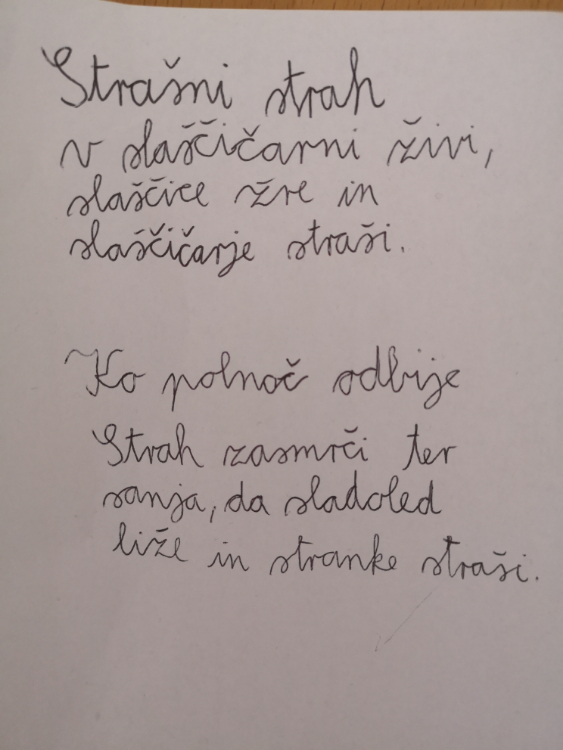 Strašni strah
v slaščičarni živi,
slaščice žre in
slaščičarje straši.
Ko polnoč odbije
Strah zasmrči ter
sanja, da sladoled
liže in stranke straši.